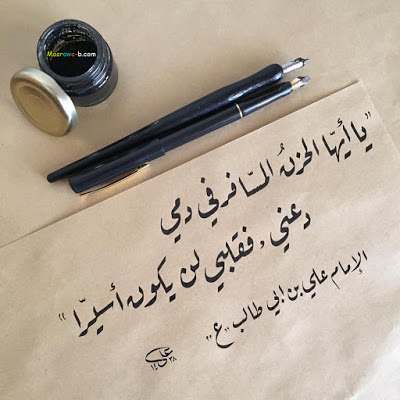 Masrawa-b.com
"يا أيّها الحزنُ المسَافر في دمي
دعني، فقلبي لن يكون أسيرًا"
الإمام علي بن ابي طالب "ع"
علي
١٤٣٨